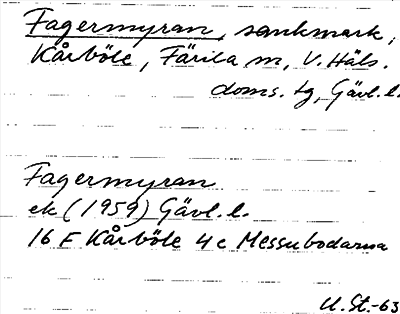 Fagermyran, sankmark,
Kårböle, Färila sn, V. Häls.
doms. tg, Gävl. l.
Fagermyran
ek (1959) Gävl. l.
16 F Kårböle 4 c Messubodarna
U. St. -63